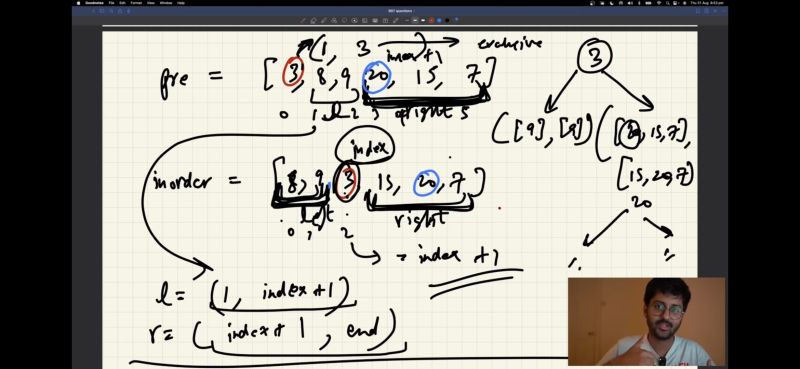 Goodnotes File Edit View Insert Format Window Help
Thu 31 Aug 8:53 pm
BST questions
(1, 3) exclusive
index+1
pre = [3, 8, 9, 20, 15, 7]
0 1 l 2 3 right 5
3
([9], [9]) ([20, 15, 7],
[15, 20, 7])
20
index
inorder = [8, 9, 3, 15, 20, 7]
left right
0 1 2
= index + 1
l = (1, index+1)
r = (index + 1, end)